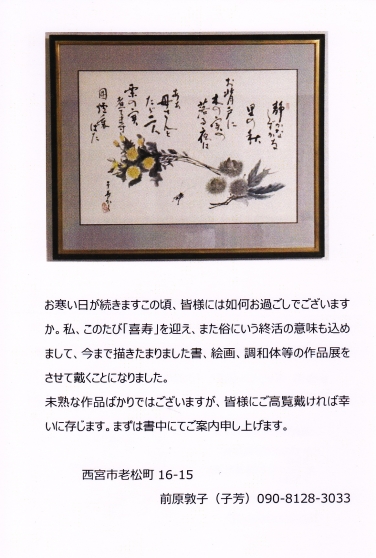 静かな
しずかな
里の秋
お背戸に
木の実の
落る夜は
あゝ
母さんと
たゞ二人
栗の実
煮てます
囲炉裏
ばた
お寒い日が続きますこの頃、皆様には如何お過ごしでございます
か。私、このたび「喜寿」を迎え、また俗にいう終活の意味も込め
まして、今まで描きたまりました書、絵画、調和体等の作品展を
させて戴くことになりました。
未熟な作品ばかりではございますが、皆様にご高覧戴ければ幸
いに存じます。まずは書中にてご案内申し上げます。
西宮市老松町 16-15
前原敦子（子芳）090-8128-3033